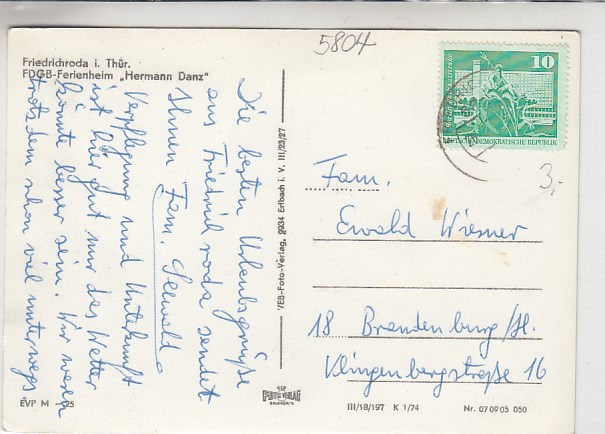 5804
Friedrichroda i. Thür.
FDGB-Ferienheim „Hermann Danz"
Die besten Urlaubsgrüße
aus Friedrichroda sendet
Ihnen Fam. Seewald.
Verpflegung und Unterkunft
ist hier gut nur das Wetter
könnte besser sein. Wir waren
trotzdem schon viel unterwegs
VEB-Foto-Verlag, 9934 Erlbach i. V. III/23/27
10
DEUTSCHE DEMOKRATISCHE REPUBLIK
3,-
Fam.
Ewald Wiemer
18 Brandenburg/H.
Klingenbergstraße 16
EVP M -,25
III/18/197 K 1/74
Nr. 07 09 05 050